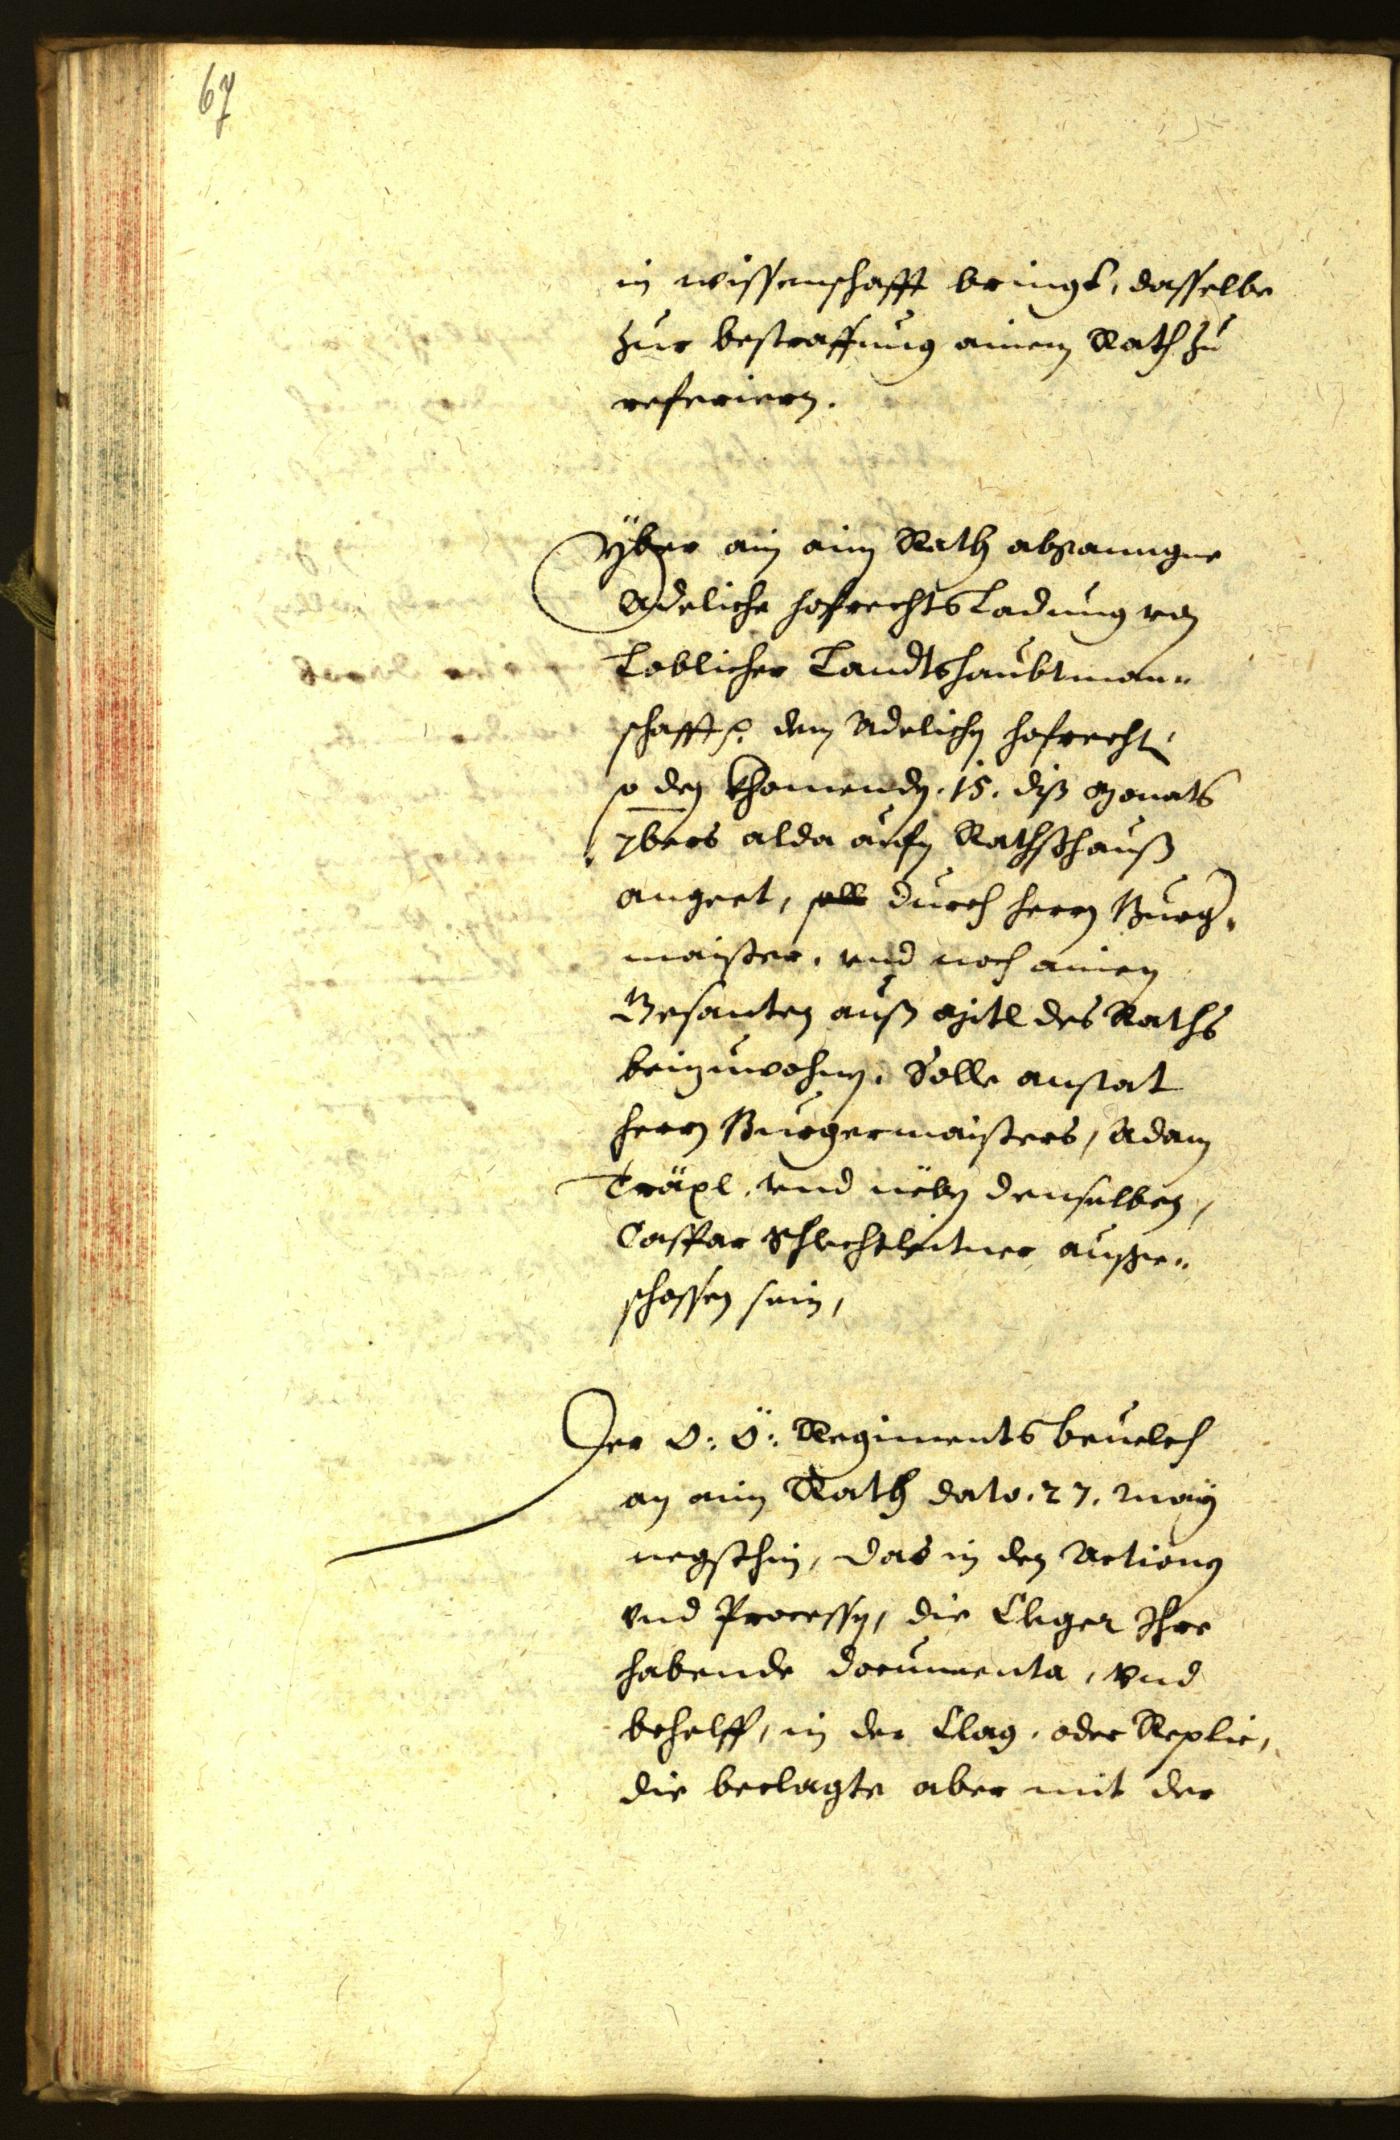 67
in wissenschafft bringt, dasselbe
zur bestraffung ainem Rath zu
referiern.
Yber ain aim Rath abgangne
Adeliche hofrechts Ladung von
Loblicher Landtshaubtman„
schafft dem Adelichn hofrecht,
so den khomendn .15. diß Monats
7bers alda aufn Rathshauß
angeet, soll durch herrn Burg„
maister, vnd noch ainen
Gesanten auß mitl des Raths
beizuwohnen, Solle anstat
herrn Burgermaisters, Adam
Träxl, vnd nëbn denselben,
Casspar Schlechtleitner auße„
schossen sein,
Der O: Ö: Regiments beuelch
an aim Rath dato .27. May
negsthin, das in den Actionen
vnd Processn, die Cleger Ihre
habende documenta, vnd
behelff, in der Clag, oder Replic,
die beclagte aber mit der